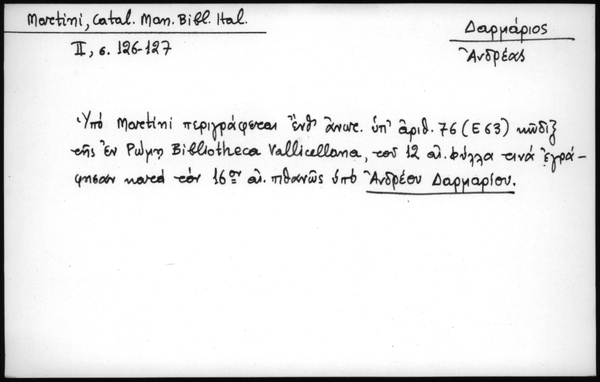 Martini, Catal. Man. Bibl. Ital.
II, σ. 126-127
Δαρμάριος
Ἀνδρέας
Ὑπό Martini περιγράφεται ἔνθ' ἄνωτ. ὑπ' ἀριθ. 76 (E 63) κῶδιξ
τῆς ἐν Ρώμῃ Bibliotheca Vallicellana, τοῦ 12 αἰ. φύλλα τινά ἐγρά-
φησαν κατά τόν 16ον αἰ. πιθανῶς ὑπό Ἀνδρέου Δαρμαρίου.